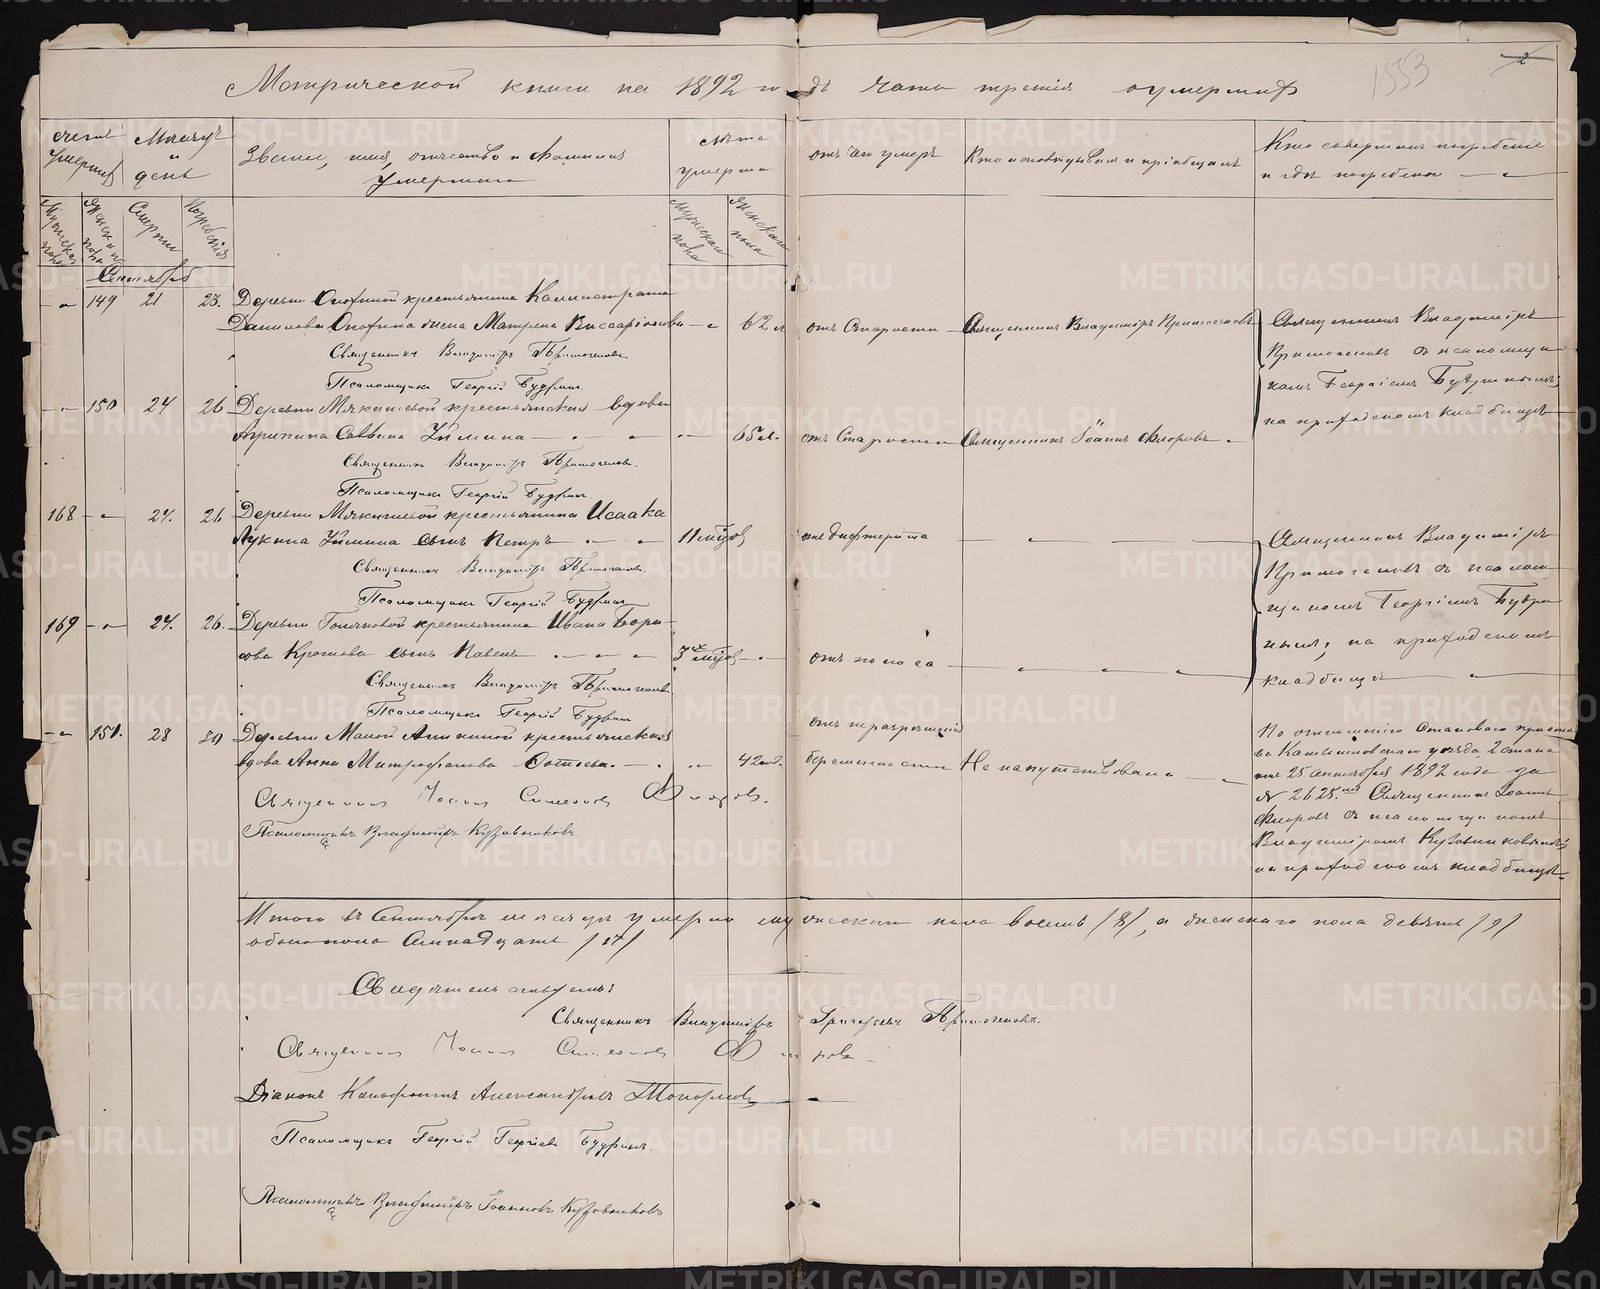 Метрической книги на 1892 годъ часть третія о умершихъ
1553
2
Счетъ умершихъ
Мѣсяцъ и день
Званіе, имя, отчество и фамилія умершаго
Лѣта умершаго
отъ чего умеръ
Кто исповѣдывалъ и пріобщалъ
Кто совершалъ погребеніе и гдѣ погребены
Мужескаго пола
Женскаго пола
Смерти
Погребенія
Мужескаго пола
Женскаго пола
Сентябрь
149 21 23. Деревни крестьянина Каллистрата
Данилова жена Матрена Виссаріонова 62 л отъ Старости Священникъ Владиміръ Примогеновъ
Священникъ Владиміръ Примогеновъ
Псаломщикъ Георгій Будринъ
Священникъ Владиміръ
Примогеновъ съ псаломщи
комъ Георгіемъ Будринымъ;
на приходскомъ кладбищѣ
150 24 26 Деревни Мякишевой крестьянская вдова
Агрипина Саввина 65 л. отъ Старости Священникъ Іоаннъ Флоровъ
Священникъ Владиміръ Примогеновъ.
Псаломщикъ Георгій Будринъ.
168 24. 26 Деревни Мякишевой крестьянина Исаака
Лукина сынъ Петръ 11 мѣсяцовъ отъ дифтерита
Священникъ Владиміръ Примогеновъ.
Псаломщикъ Георгій Будринъ
Священникъ Владиміръ
Примогеновъ съ псалом
щикомъ Георгіемъ Будри
нымъ; на приходскомъ
кладбищѣ
169 24. 26. Деревни крестьянина Ивана Бори
сова сынъ Павелъ 3 мѣсяцовъ отъ поноса
Священникъ Владиміръ Примогеновъ
Псаломщикъ Георгій Будринъ
151. 28 30 Деревни Малой крестьянская
вдова Анна Митрофанова 42 год. отъ беременности Не напутствована
Священникъ Іоаннъ Симеоновъ Флоровъ.
Псаломщикъ Владиміръ Кузовниковъ.
По отношенію Становаго пристава
Камышловскаго уѣзда 2 стана
отъ 25 Сентября 1892 года за
№ 2625. Священникъ Іоаннъ
Флоровъ съ псаломщикомъ
Владиміромъ Кузовниковымъ;
на приходскомъ кладбищѣ.
Итого въ Сентябрѣ мѣсяцѣ умерло мужескаго пола восемь /8/, а женскаго пола девять /9/
обоего пола Семнадцать /17/
Священникъ Владиміръ Григорьевъ Примогеновъ.
Священникъ Іоаннъ Симеоновъ Флоровъ
Діаконъ Александровъ Топорковъ
Псаломщикъ Георгій Георгіевъ Будринъ.
Псаломщикъ Владиміръ Іоанновъ Кузовниковъ
METRIKI.GASO-URAL.RU